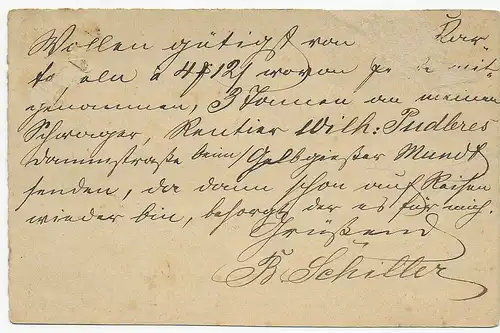 Wollen gütigst von Kar-
to eln a 4 12 wovon mit
genommen, 3 Tonnen an meinen
Schwager, Rentier Wilh: Pudbres
Dammstraße beim Gelbgießer Mundt
senden, da dann schon auf Reisen
wieder bin, besorgt der es für mich.
Grüßend
B Schiller